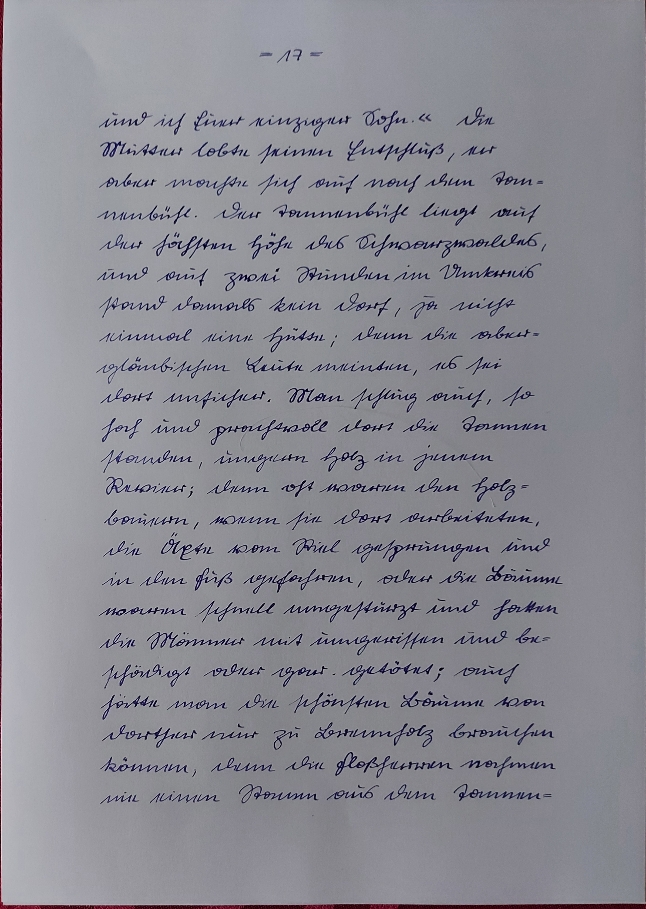 = 17 =
und ich Euer einziger Sohn.« Die
Mutter lobte seinen Entschluß, er
aber machte sich auf nach dem Tan=
nenbühl. Der Tannenbühl liegt auf
der höchsten Höhe des Schwarzwaldes,
und auf zwei Stunden im Umkreis
stand damals kein Dorf, ja nicht
einmal eine Hütte; denn die aber=
gläubischen Leute meinten, es sei
dort unsicher. Man schlug auch, so
hoch und prachtvoll dort die Tannen
standen, ungern Holz in jenem
Revier; denn oft waren den Holz=
hauern, wenn sie dort arbeiteten,
die Äxte vom Stiel gesprungen und
in den Fuß gefahren, oder die Bäume
waren schnell umgestürzt und hatten
die Männer mit umgerissen und be=
schädigt oder gar getötet; auch
hätte man die schönsten Bäume von
dorther nur zu Brennholz brauchen
können, denn die Floßherren nahmen
nie einen Stamm aus dem Tannen=